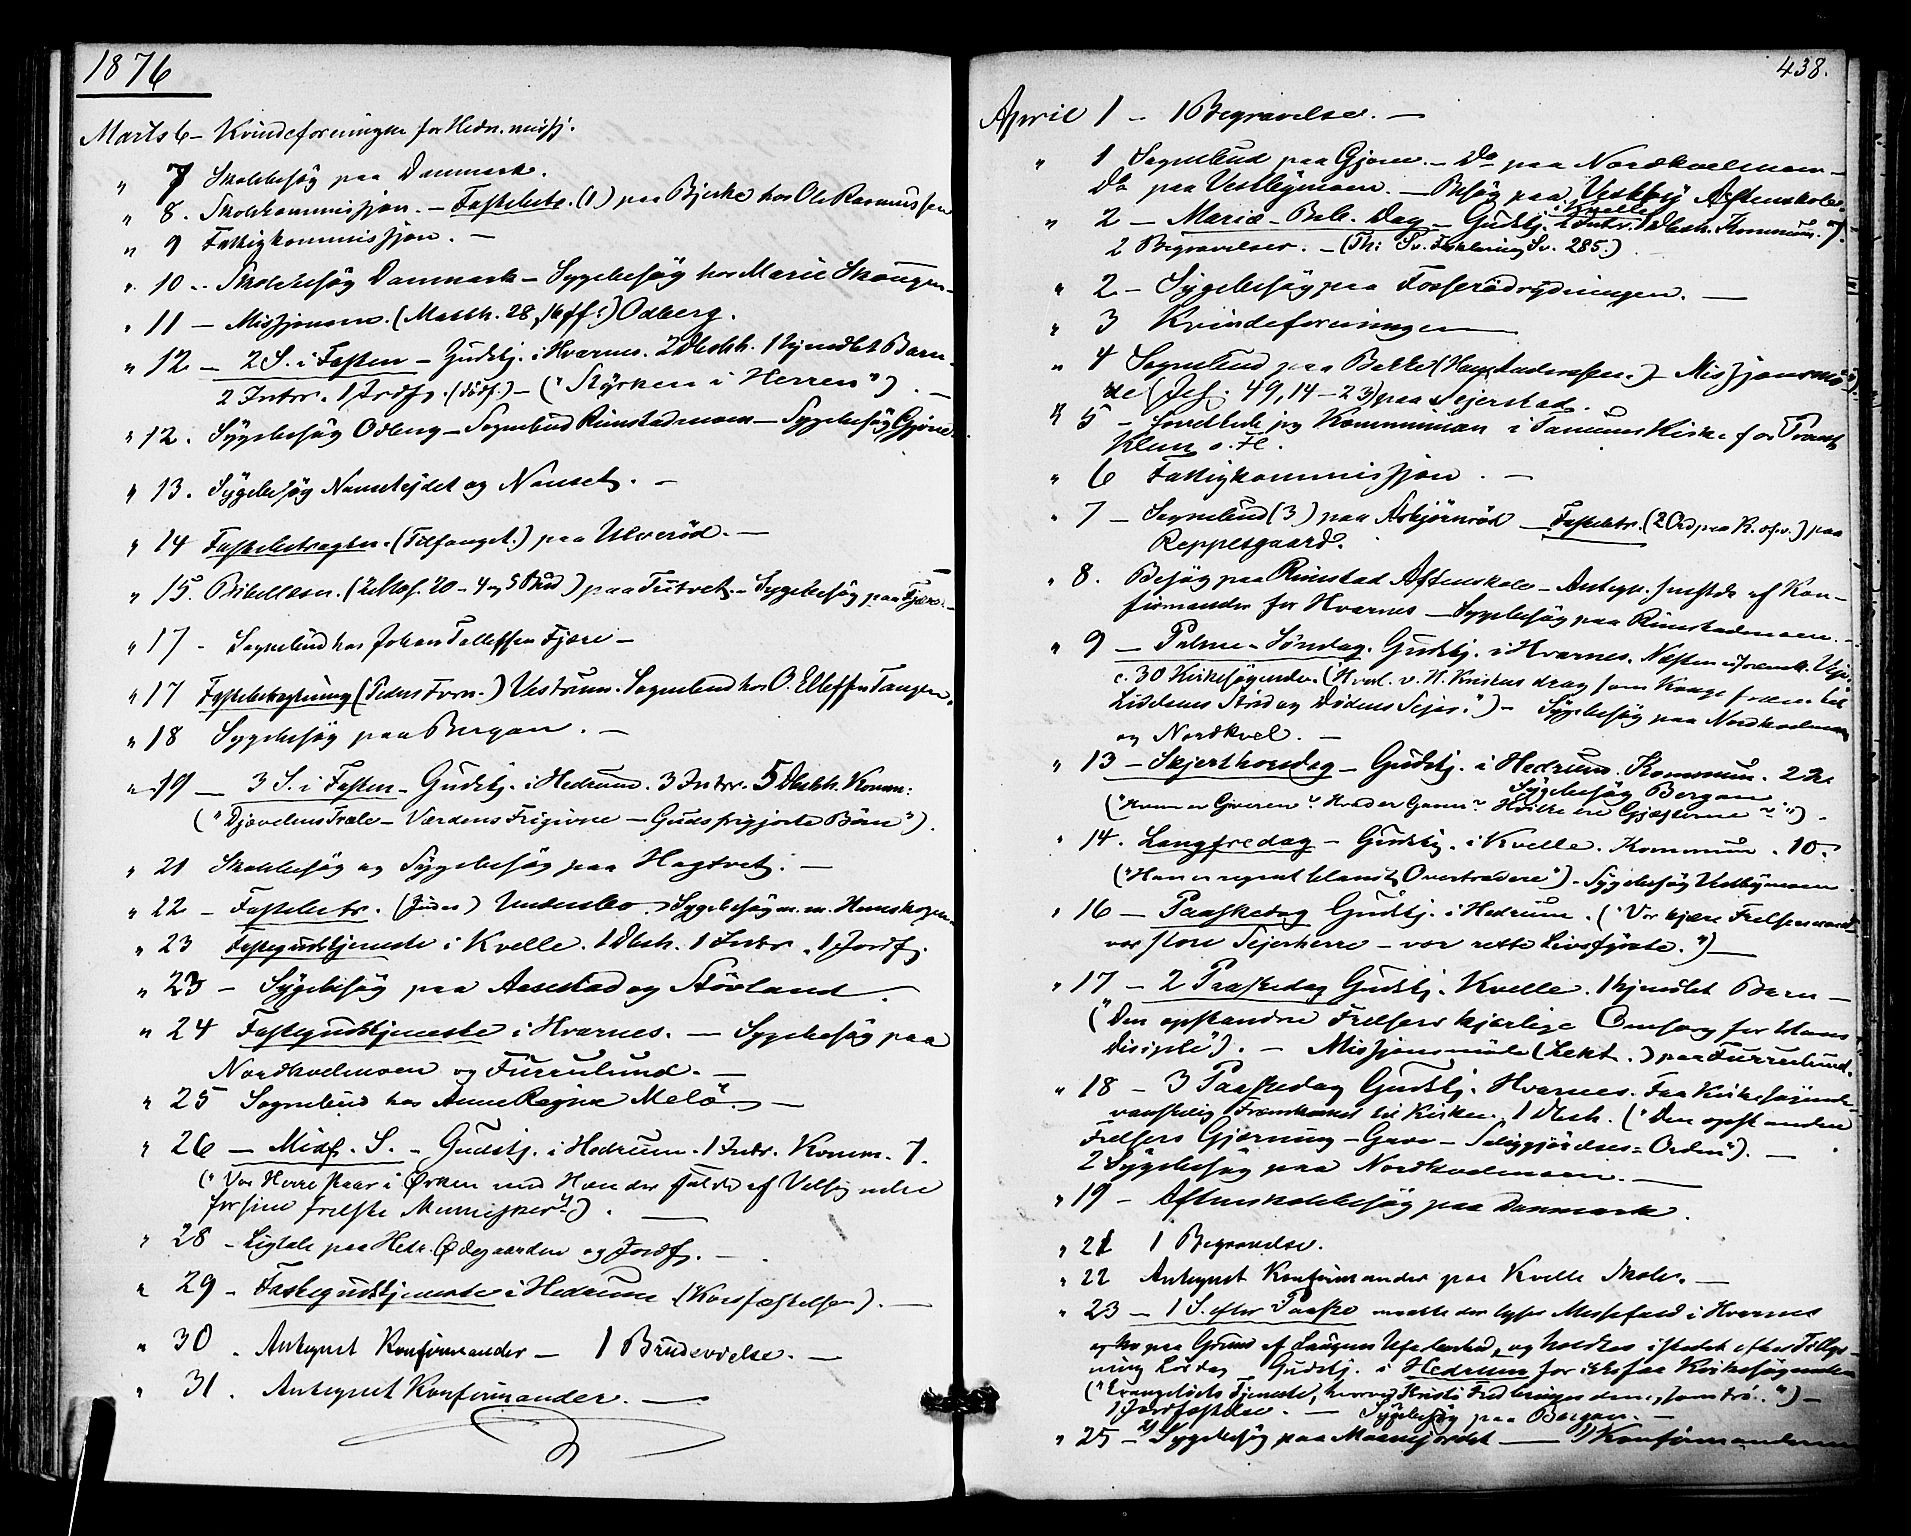 1876
Marts 6 - Kvindeforeningen for Hedn. missj.
" 7 Skolebesøg paa Danmark.
" 8. Skolekommissjon. - Fastebetr. (1) paa Bjerke hos Ole Rasmussen
" 9 Fattigkommissjon. -
" 10 - Skolebesøg Danmark - Sygebesøg hos Marie Skougen -
" 11 - Missjonen. (Matth. 28, 16 ff:) Odberg.
" 12 - 2 S. i Fasten - Gudstj. i Hvarnes. 2 Dbsbh. 1 hjmdbt Barn -
2 Intr. 1 Jordf. (dødf.) - ("Styrken i Herren") -
" 12. Sygebesøg Odberg - Sognebud Rimstadmoen - Sygebesøg Gjone.
" 13. Sygebesøg Nansetejdet og Nanset. -
" 14 Fastebetragtn. (Tilfanget.) paa Ulverød. -
" 15. Bibellæsn. (2 Mos. 20 - 4 og 5 Bud) paa Tutvet. - Sygebesøg paa Fjære. -
" 17 - Sognebud hos Johan Tollefsen Fjære -
" 17 Fastebetragtning (Peders Forn.) Vestrum. Sognebud hos O. Ellefsen Tangen.
" 18 Sygebesøg paa Bergan. -
" 19 - 3 S. i Fasten - Gudstj. i Hedrum. 3 Intr. 5 Dbsbh. Komm:
("Djævelens Træle - Verdens Frigivne - Guds frigjorte Børn").
" 21 Skolebesøg og Sygebesøg paa Hagtvet. -
" 22 - Fastebetr. (Judas) Undersbo. Sygebesøg m. m. Hemskogen
" 23 Fastegudstjeneste i Kvelle. 1 Dbsb. 1 Intr. 1 Jordf.
" 23 - Sygebesøg paa Aasestad og Støvland -
" 24 Fastegudstjeneste i Hvarnes. - Sygebesøg paa
Nordkvelmoen og Furrulund. -
" 25 Sognebud hos Anne Regine Melø -
" 26 - Midf. S. - Gudstj. i Hedrum. 1 Intr. Komm. 7.
("Vor Herre staar i Ørken med Hænder fulde af Velsignelse
for sine frelste Mennesker") . -
" 28 - Ligtale paa Hedr. Ødegaarden og Jordf. -
" 29 - Fastegudstjeneste i Hedrum (Korsfæstelsen). -
" 30 . Antegnet Konfirmander - 1 Brudevielse. -
" 31 . Antegnet Konfirmander. -
438.
April 1 - 1 Begravelse. -
" 1 Sognebud paa Gjone - Do paa Nordkvelmoen -
Do paa Vestbymoen. - Besøg paa Vestby Aftenskole.
" 2 - Mariæ - Beb. Dag - Gudstj. i Kvelle 1 Intr. 1 Dbsb. Kommun. 7.
2 Begravelser. - (Th: Sv. Forklaring Sv. 285.)
" 2 - Sygebesøg paa Fosserødrydningen. -
" 3 Kvindeforeningen
" 4 Sognebud paa Bakke (Hans Andersen.) - Missjonsmø-
de (Jes. 49, 14 - 23) paa Sejerstad.
" 5 - forrettede jeg Kommunion i Tanum Kirke for Provst
Klem o. Fl.
" 6 Fattigkommissjon . -
" 7 - Sognebud (3) paa Asbjørnrød - Fastebetr. (2 Ord paa K. o. s. v.) paa
Reppesgaard.
" 8. Besøg paa Rimstad Aftenskole - Antegn. sidste af Kon-
firmander for Hvarnes - Sygebesøg paa Rimstadmoen. -
" 9 - Palme - Søndag. Gudstj. i Hvarnes. Næsten ufremk. Vej.
c. 30 Kirkesøgende. (Hvad. v. H. Kristus drag som Konge frem til
Lidelsens Strid og Dødens Sejer.") - Sygebesøg paa Nordkvelmoen
og Nordkvel. -
" 13 - Skjærthorsdag - Gudstj. i Hedrum. Kommun. 22.
Sygebesøg Bergan
("Hvem er Giveren? Hvad er Gaven? Hvilke ere Gjæsterne?").
" 14. Langfredag - Gudstj. i Kvelle. Kommun . 10.
("Han er regnet blandt Overtrædere") - Sygebesøg Vestbymoen
" 16 - Paaskedag Gudstj. i Hedrum . ("Vor kjære Frelsermand
vor store Sejerherre - vor rette Livsfyrste.") -
" 17 - 2 Paaskedag Gudstj. Kvelle. 1 hjmdbt Barn -
("Den opstandne Frelsers kjærlige Omsorg for Hans
Disciple"). - Missjonsmøde (Lekt.) paa Furrulund.
" 18 - 3 Paaskedag Gudstj. Hvarnes. Faa Kirkesøgende.
vanskelig Fremkomst til Kirken. 1 Dbsb. ("Den opstandne
Frelsers Gjærning - Gave - Saliggjørelses = Orden"). -
2 Sygebesøg paa Nordkvelmoen. -
" 19 - Aftenskolebesøg paa Danmark.
" 21 1 Begravelse.
" 22 Antegnet Konfirmander paa Kvelle Skole. -
" 23 - 1 S. efter Paaske maatte der lyses Messefald i Hvarnes
og Kv paa Grund af Laugens Uferbarhed, og holdtes istedet efter Tillys-
ning Lørdag - Gudstj. i Hedrum for ikke faa Kirkesøgende
("Evangeliets Tjeneste, hvorved Kristi Fred bringes dem, som tro.") -
1 Jordfæstelse. - Sygebesøg paa Bergan. -
" 25 - 2) Sygebesøg paa Maanejordet - 1) Konfirmanderne